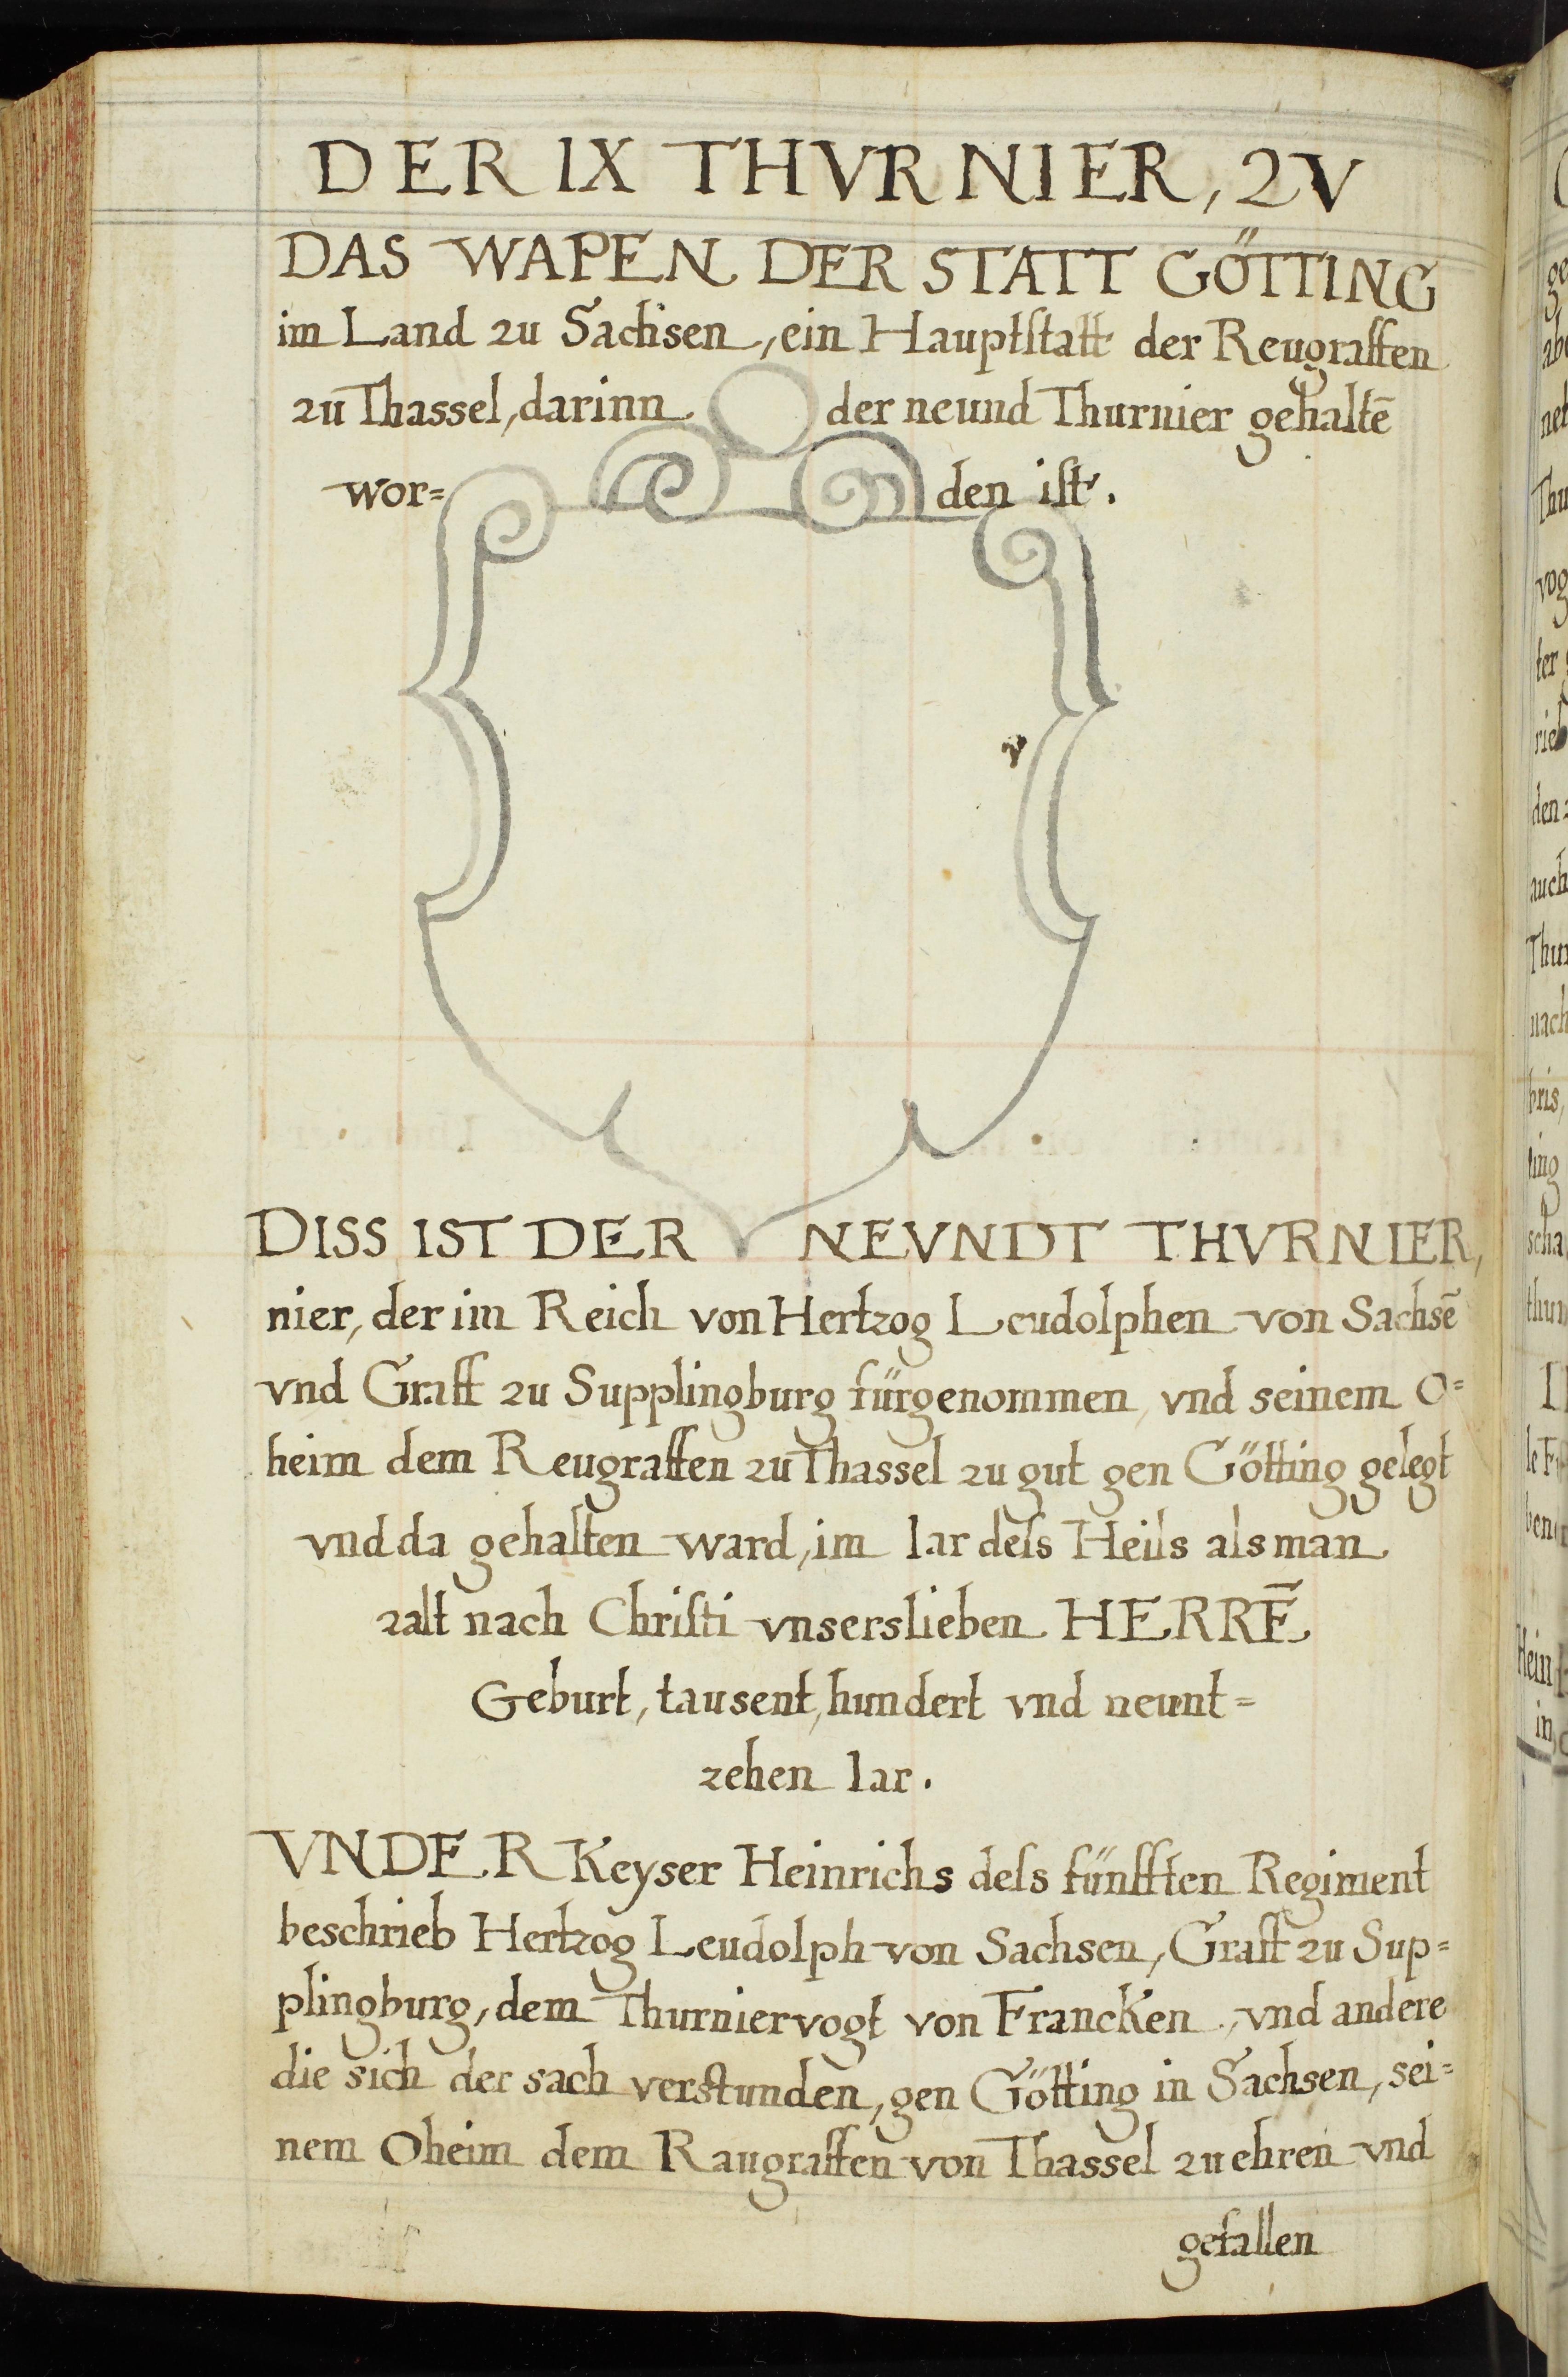 DER IX THVRNIER, ZV
DAS WAPEN DER STATT GÖTTING
im Land zu Sachsen, ein Hauptſtatt der Reugraffen
zu Thassel, darinn der neund Thurnier gehaltē
wor= den iſt.
DISS IST DER NEVNDT THVRNIER,
nier, der im Reich von Hertzog Leudolphen von Sachsē
vnd Graff zu Supplingburg fürgenommen, vnd seinem O=
heim dem Reugraffen zu Thassel zu gut gen Götting gelegt
vnd da gehalten ward, im Iar deſs Heils als man
zalt nach Chriſti vnserslieben HERRĒ
Geburt, tausent, hundert vnd neunt=
zehen Iar.
VNDER Keyser Heinrichs deſs fünfften Regiment
beschrieb Hertzog Leudolph von Sachsen, Graff zu Sup=
plingburg, dem Thurniervogt von Francken, vnd andere
die sich der sach verſtunden, gen Götting in Sachsen, sei=
nem Oheim dem Raugraffen von Thassel zu ehren vnd
gefallen